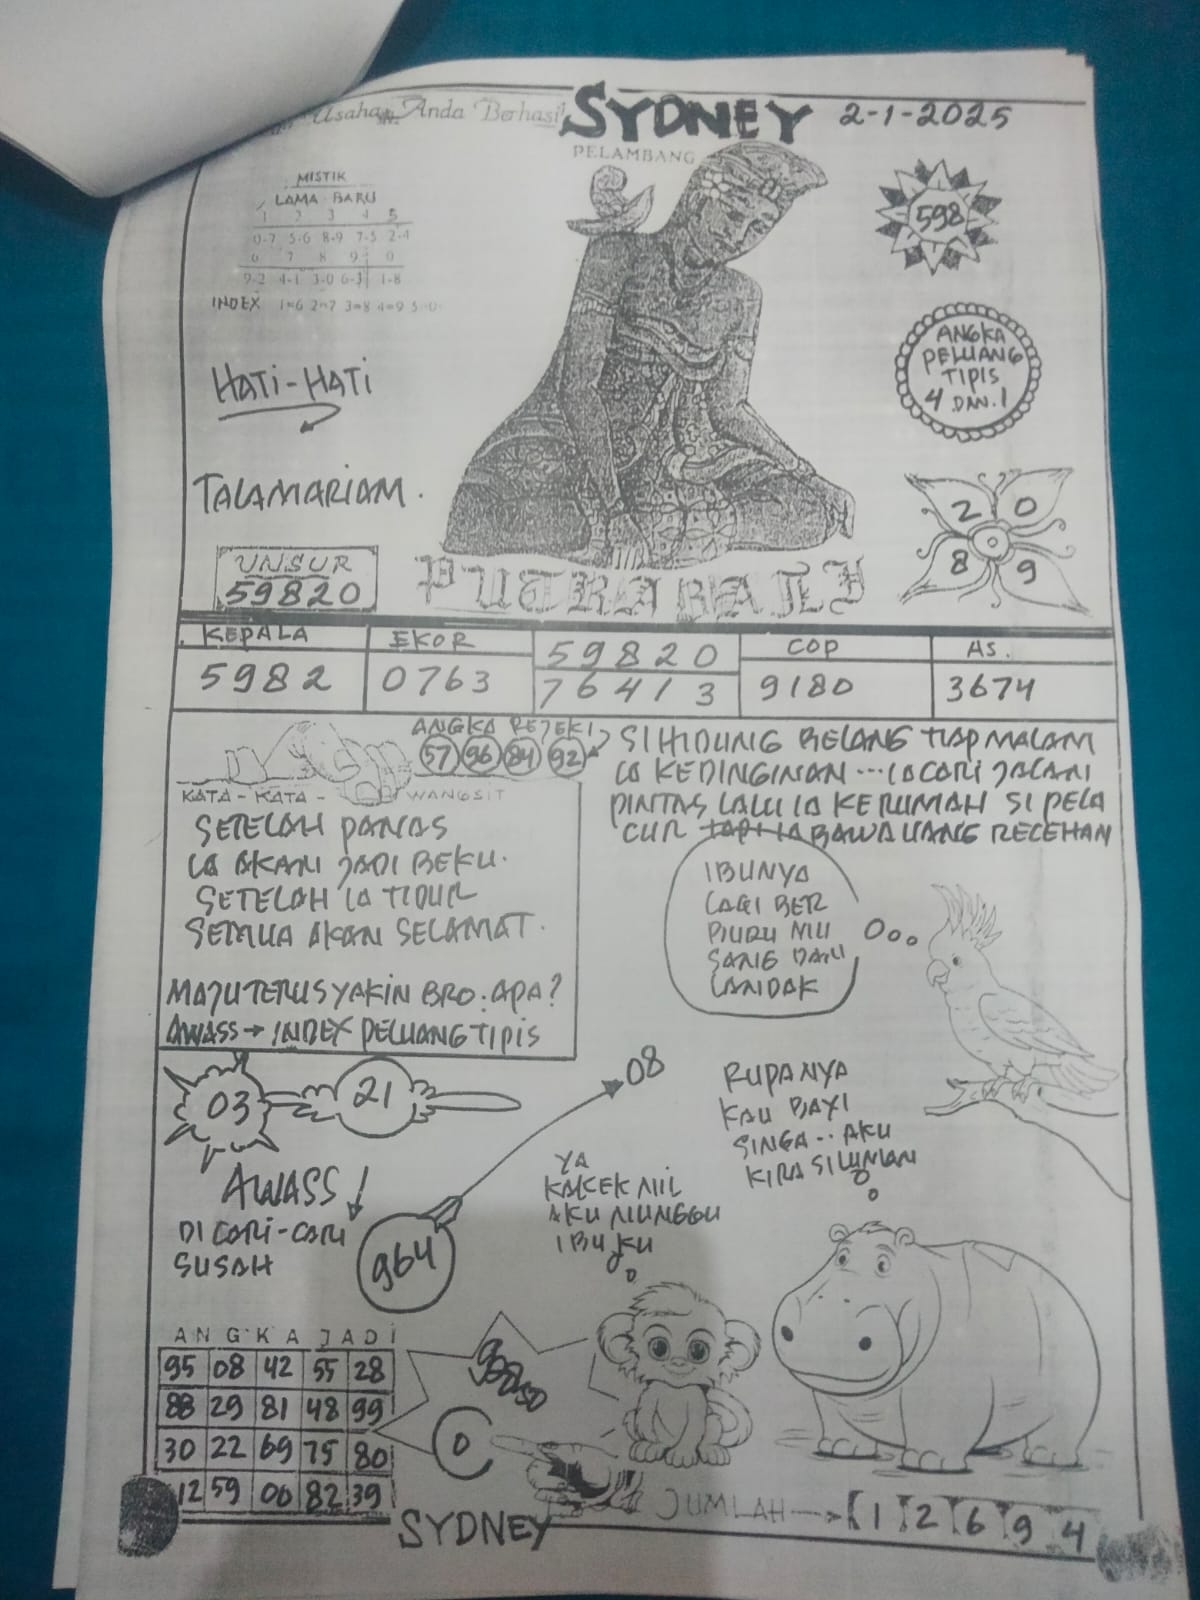 Usaha Anda Berhasil
SYDNEY 2-1-2025
PELAMBANG
MISTIK
LAMA BARU
1 2 3 4 5
0-7 5-6 8-9 7-5 2-4
6 7 8 9 0
9-2 4-1 3-0 6-3 1-8
INDEX 1=6 2=7 3=8 4=9 5=0
598
HATI-HATI
ANGKA
PELUANG
TIPIS
4 DAN.1
TALAMARIAM.
2 0
8 9
UNSUR
59820
PUTRA BALI
KEPALA EKOR 59820 COP AS.
5982 0763 76413 9180 3674
ANGKA REJEKI
57 96 84 92
SI HIDUNG BELANG TIAP MALAM
IA KEDINGINAN ... IA CARI JALAN
PINTAS LALU IA KERUMAH SI PELA
CUR TAPI IA BAWA UANG RECEHAN
KATA-KATA- WANGSIT
SETELAH PANAS
IA AKAN JADI BEKU.
SETELAH IA TIDUR
SEMUA AKAN SELAMAT.
MAJU TERUS YAKIN BRO. APA?
AWASS → INDEX PELUANG TIPIS
IBUNYA
LAGI BER
BURU MU
SANG DAN
LANDAK
03 21
08
RUPANYA
KAU BAYI
SINGA.. AKU
KIRA SILUMAN
AWASS
DI CARI-CARI
SUSAH
964
YA
KAKEK NIL
AKU MUNGGU
IBU KU
ANGKA JADI
95 08 42 55 28
88 29 81 48 99
30 22 69 75 80
12 59 00 82 39
0
JUMLAH → 1 2 6 9 4
SYDNEY